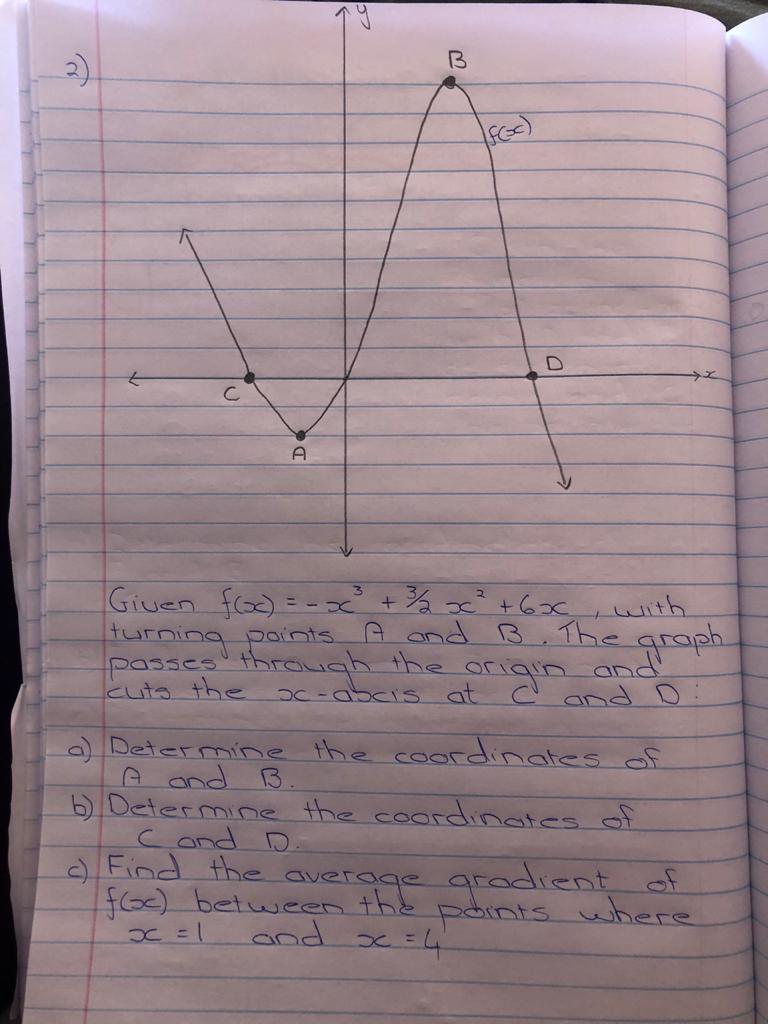 y
2)
B
f(x)
D
x
C
A
Given f(x) = -x³ + 3/2 x² + 6x , with
turning points A and B. The graph
passes through the origin and
cuts the x-abcis at C and D:
a) Determine the coordinates of
A and B.
b) Determine the coordinates of
C and D.
c) Find the average gradient of
f(x) between the points where
x = 1 and x = 4